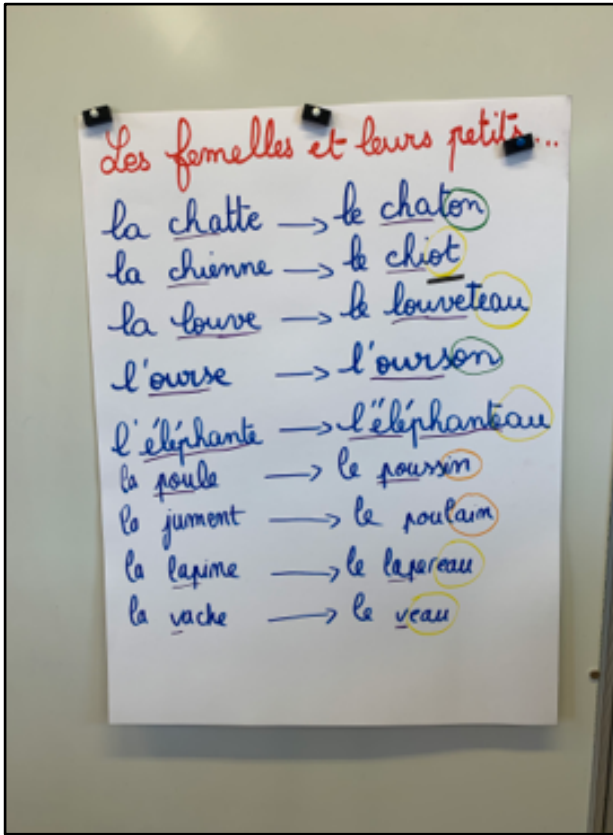 Les femelles et leurs petits...
la chatte → le chaton
la chienne → le chiot
la louve → le louveteau
l'ourse → l'ourson
l'éléphante → l'éléphanteau
la poule → le poussin
la jument → le poulain
la lapine → le lapereau
la vache → le veau